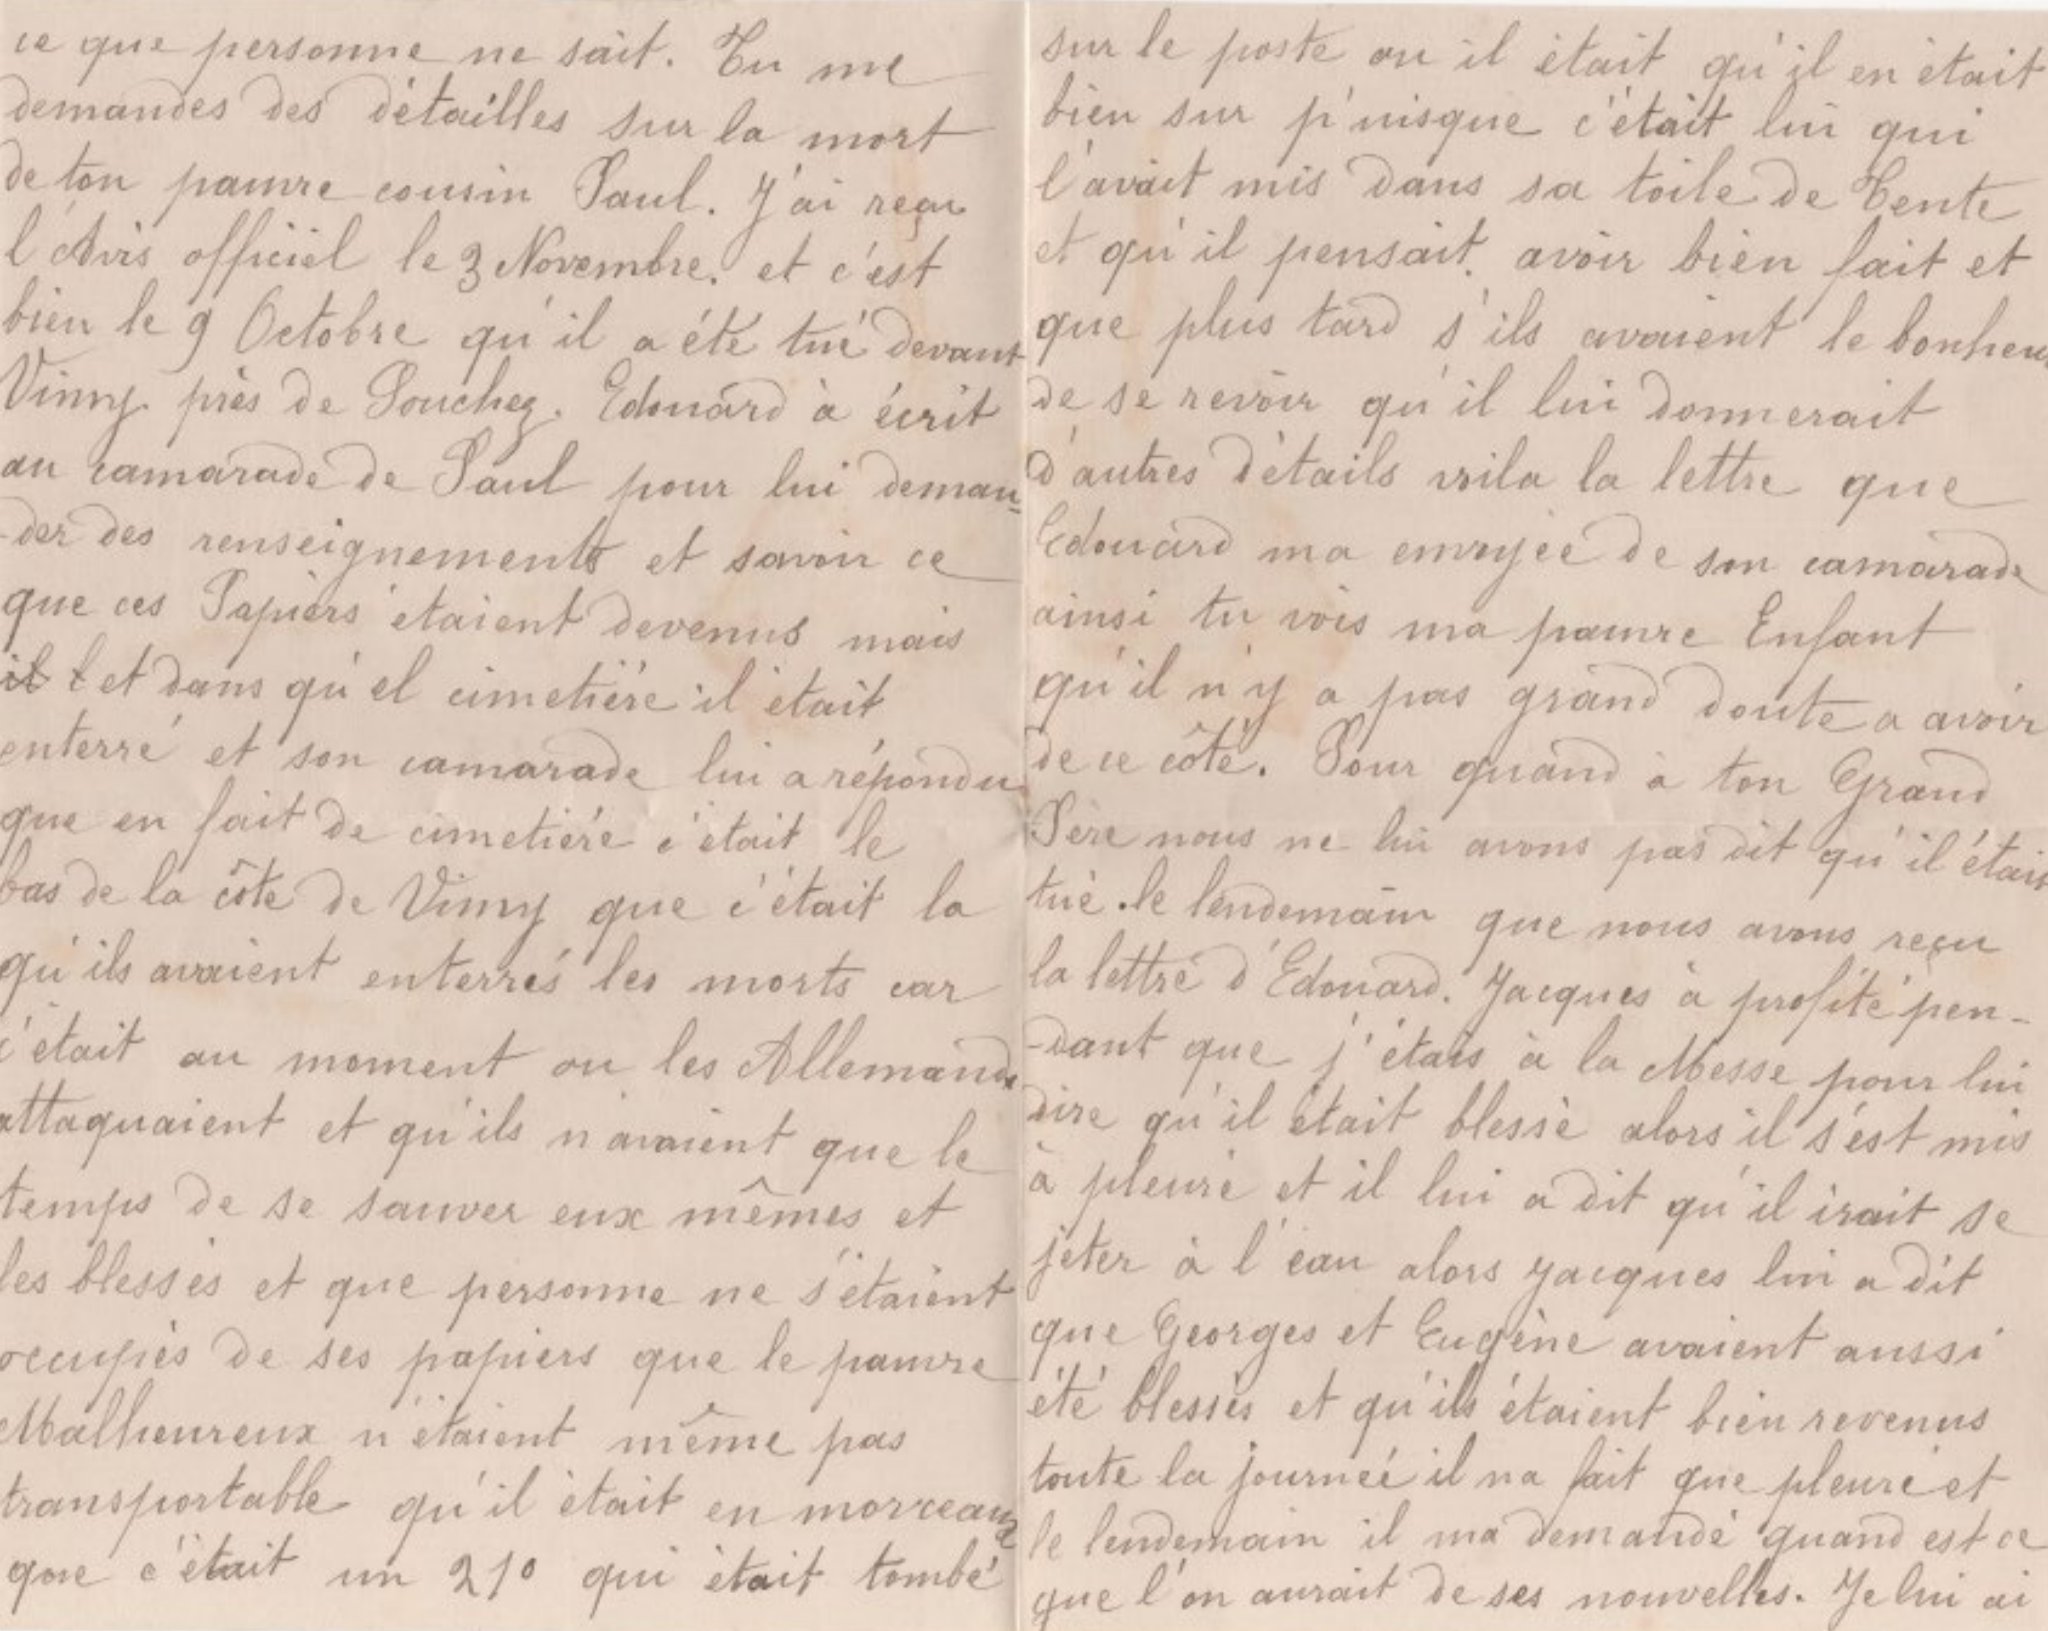 ce que personne ne sait. Tu me
demandes des détailles sur la mort
de ton pauvre cousin Paul. J'ai reçu
l'Avis officiel le 3 Novembre. et c'est
bien le 9 Octobre qu'il a été tué devant
Vimy près de Souchez. Edouard à écrit
au camarade de Paul pour lui deman-
-der des renseignements et savoir ce
que ces Papiers étaient devenus mais
il l et dans qu'el cimetière il était
enterré et son camarade lui a répondu
que en fait de cimetière c'était le
bas de la côte de Vimy que c'était la
qu'ils avaient enterrés les morts car
c'était au moment ou les Allemands
attaquaient et qu'ils n'avaient que le
temps de se sauver eux mêmes et
les blessés et que personne ne s'étaient
occupés de ses papiers que le pauvre
Malheureux n'étaient même pas
transportable qu'il était en morceaux
que c'était un 210 qui était tombé
sur le poste ou il était qu'il en était
bien sur p'uisque c'était lui qui
l'avait mis dans sa toile de Tente
et qu'il pensait. avoir bien fait et
que plus tard s'ils avaient le bonheur
de se revoir qu'il lui donnerait
d'autres détails voila la lettre que
Edouard ma envoyée de son camarade
ainsi tu vois ma pauvre Enfant
qu'il n'y a pas grand doute a avoir
de ce côté. Pour quand à ton Grand
Père nous ne lui avons pas dit qu'il était
tué. le lendemain que nous avons reçu
la lettre d'Edouard. Jacques à profité pen-
-dant que j'étais à la Messe pour lui
dire qu'il était blessé alors il s'est mis
à pleuré et il lui a dit qu'il irait se
jeter à l'eau alors Jacques lui a dit
que Georges et Eugène avaient aussi
été blessés et qu'ils étaient bien revenus
toute la journée il na fait que pleuré et
le lendemain il ma demandé quand est ce
que l'on aurait de ses nouvelles. Je lui ai